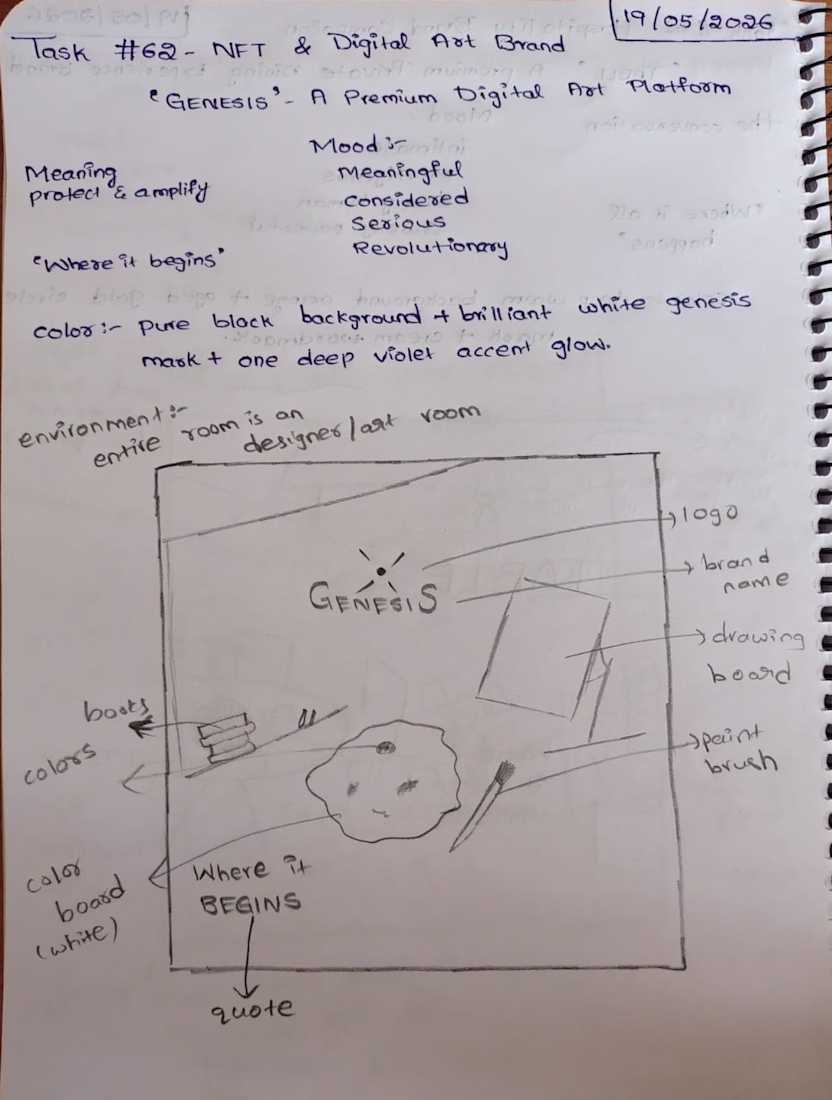 19/05/2026
Task #62 - NFT & Digital Art Brand
"GENESIS" - A Premium Digital Art Platform
Mood :-
Meaning
protect & amplify
Meaningful
Considered
Serious
Revolutionary
"Where it begins"
color :- pure black background + brilliant white genesis
mark + one deep violet accent glow.
environment :-
entire room is an
designer/art room
logo
GENESIS
brand
name
drawing
board
books
colors
paint
brush
color
board
(white)
Where it
BEGINS
quote